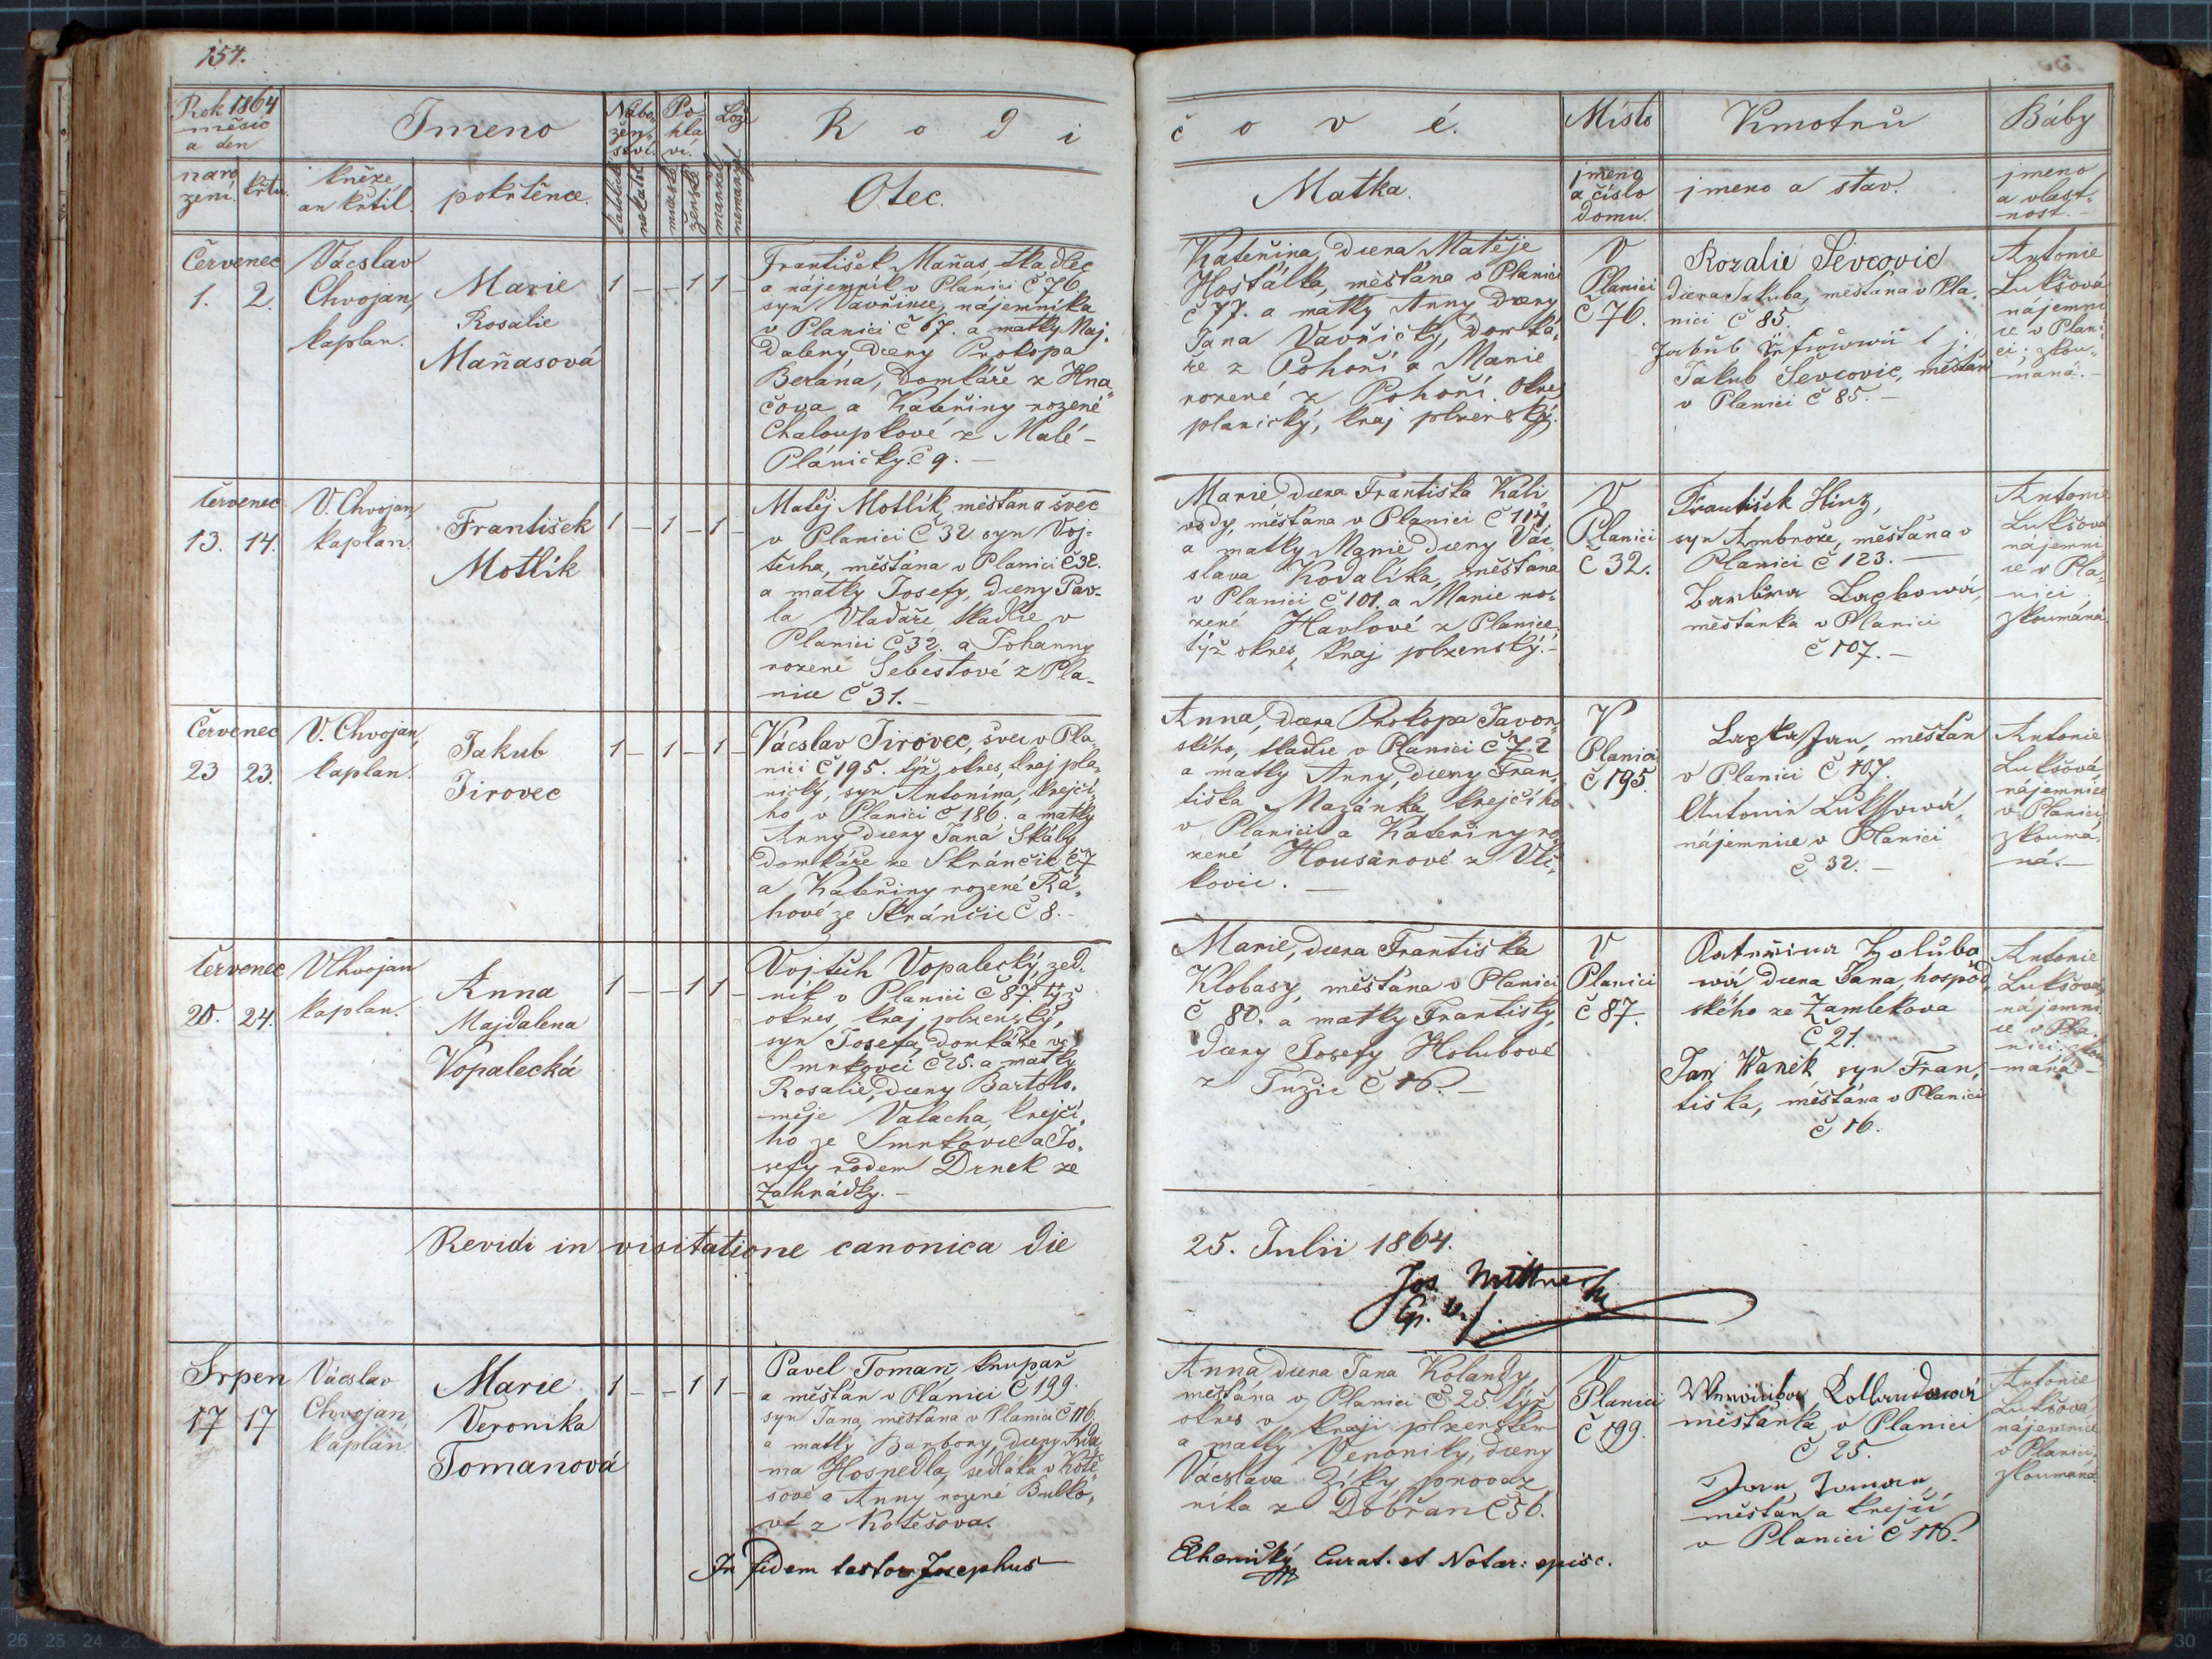 157.
Rok 1864
měsíc
a den
naro
zení.
křtu.
Jmeno
kněze
an křtil.
pokřtěnce.
Nábo
žen-
ství.
Po-
hla
ví.
Lože
katolické
nekatol
mužské
ženské
manžel.
nemanžel.
R o d i
Otec.
č o v é.
Matka.
Místo
jmeno
a číslo
domu.
Kmotrů
jmeno a stav.
Báby
jmeno
a vlast-
nost.
Červenec
1. 2.
Vácslav
Chvojan,
kaplan.
Marie
Rosalie
Maňasová
1 — — 1 1 —
František Maňas, tkadlec
a nájemník v Plánici č 76.
syn Vavřince, nájemníka
v Planici č 67. a matky Maj.
daleny, dcery Prokopa
Berána, domkáře z Hna
čova a Kateřiny rozené
Chaloupkové z Malé-
Pláničky č 9. —
Kateřina, dcera Matěje
Hošťálka, měšťána v Planici
č 77. a matky Anny dcery
Jana Vavřičky, domká-
ře z Pohoří a Marie
rozené z Pohoří. Okres
planický, kraj plzenský.
V
Planici
č 76.
Rozalie Ševcovic
dcera Jakuba, měšťana v Pla.
nici č 85.
Jakub Ševcovic, měšťan
v Planici č 85. —
Antonie
Lukšová
nájemni
ce v Plani
ci; zkou-
maná. —
Červenec
13. 14.
V. Chvojan,
kaplan.
František
Motlík
1 — 1 — 1 —
Matěj Motlík, měšťana švec
v Planici č 32. syn Voj-
těcha, měšťána v Planici č 32.
a matky Josefy, dcery Pav-
la Vladaře, tkadlce v
Planici č 32. a Johanny
rozené Šebestové z Pla-
nice č 31. —
Marie, dcera Františka Kali
vody, měšťana v Planici č 114.
a matky Marie dcery Vác-
slava Kodalíka, měšťana
v Planici č 101. a Marie ro-
zené Havlové z Planice,
týž okres, kraj plzenský. —
V
Planici
č 32.
František Hinz,
syn Ambrože, měšťana v
Planici č 123. —
měšťanka v Planici
č 107. —
Antonie
Lukšová
nájemni
ce v Pla-
nici
zkoumáná
Červenec
23 23.
V. Chvojan,
kaplan.
Jakub
Jirovec
1 — 1 — 1 —
Vácslav Jirovec, švec v Pla
nici č 195. týž okres, kraj pla-
nický, syn Antonína, krejčí-
ho v Planici č 186. a matky
Anny dcery Jana Skály
domkáře ze Skránčic č 7
a Kateřiny rozené Rá-
hové ze Skránčic č 8. —
Anna, dcera Prokopa Javor-
ského, tkadlce v Planici č 72
a matky Anny, dcery Fran-
tiška Mazánka krejčího
v Planici a Kateřiny ro
zené Housarové z Vlč-
kovic. —
V
Planici
č 195.
Lapka Jan, měšťan
v Planici č 107.
Antonie Lukssowá,
nájemnice v Planici
č 32. —
Antonie
Lukšová
nájemnice
v Planici,
zkouma.
ná. —
Červenec
20. 24.
V Chvojan
kaplan.
Anna
Majdalena
Vopalecká
1 — — 1 1 —
Vojtěch Vopalecký, zed.
ník v Planici č 87. týž
okres, kraj plzenský,
syn Josefa, domkáře ve
Smrkovci č 25. a matky
Rosalie, dcery Bartolo.
měje Valacha, krejčí.
ho ze Smrkovce a Jo.
sefy rodem Drnek ze
Zahrádky. —
Marie, dcera Františka
Klobasy, měšťana v Planici
č 80. a matky Františky,
dcery Josefy Holubové
z Tužic č 16. —
V
Planici
č 87.
Kateřina Holubo
wá dcera Jana, hospod
ského ze Zamlekova
č 21.
Jan Wanek syn Fran-
tiška, měšťána v Planici
č 16.
Antonie
Lukšová,
nájemni
ce v Pla.
nici zkou
maná —
Revidi in visitatione canonica die
25. Julii 1864.
Jos.
Srpen
17 17
Vácslav
Chvojan,
kaplan
Marie
Veronika
Tomanová
1 — — 1 1 —
Pavel Toman, krupař
a měšťan v Plánici č 199.
syn Jana, měšťana v Planici č 116.
a matky Barbory, dcery Ada
ma Hosnedla, sedláka v Kote
šově a Anny rozené Bulko-
vé z Kotěšova.
Anna dcera Jana Kolandy,
měšťana v Planici č 25. týž
okres v kraji plzenském
a matky Veroniky, dcery
Vácslava Zíky, provaz
níka z Dobřan č 56.
V
Planici
č 199.
měšťanka v Planici
č 25.
Jan Toman,
měšťan a krejčí
v Planici č 116.
Antonie
Lukšová
nájemnice
v Planici,
zkoumaná
In fidem testor Josephus
Elhenický Curat. et Notar: episc.